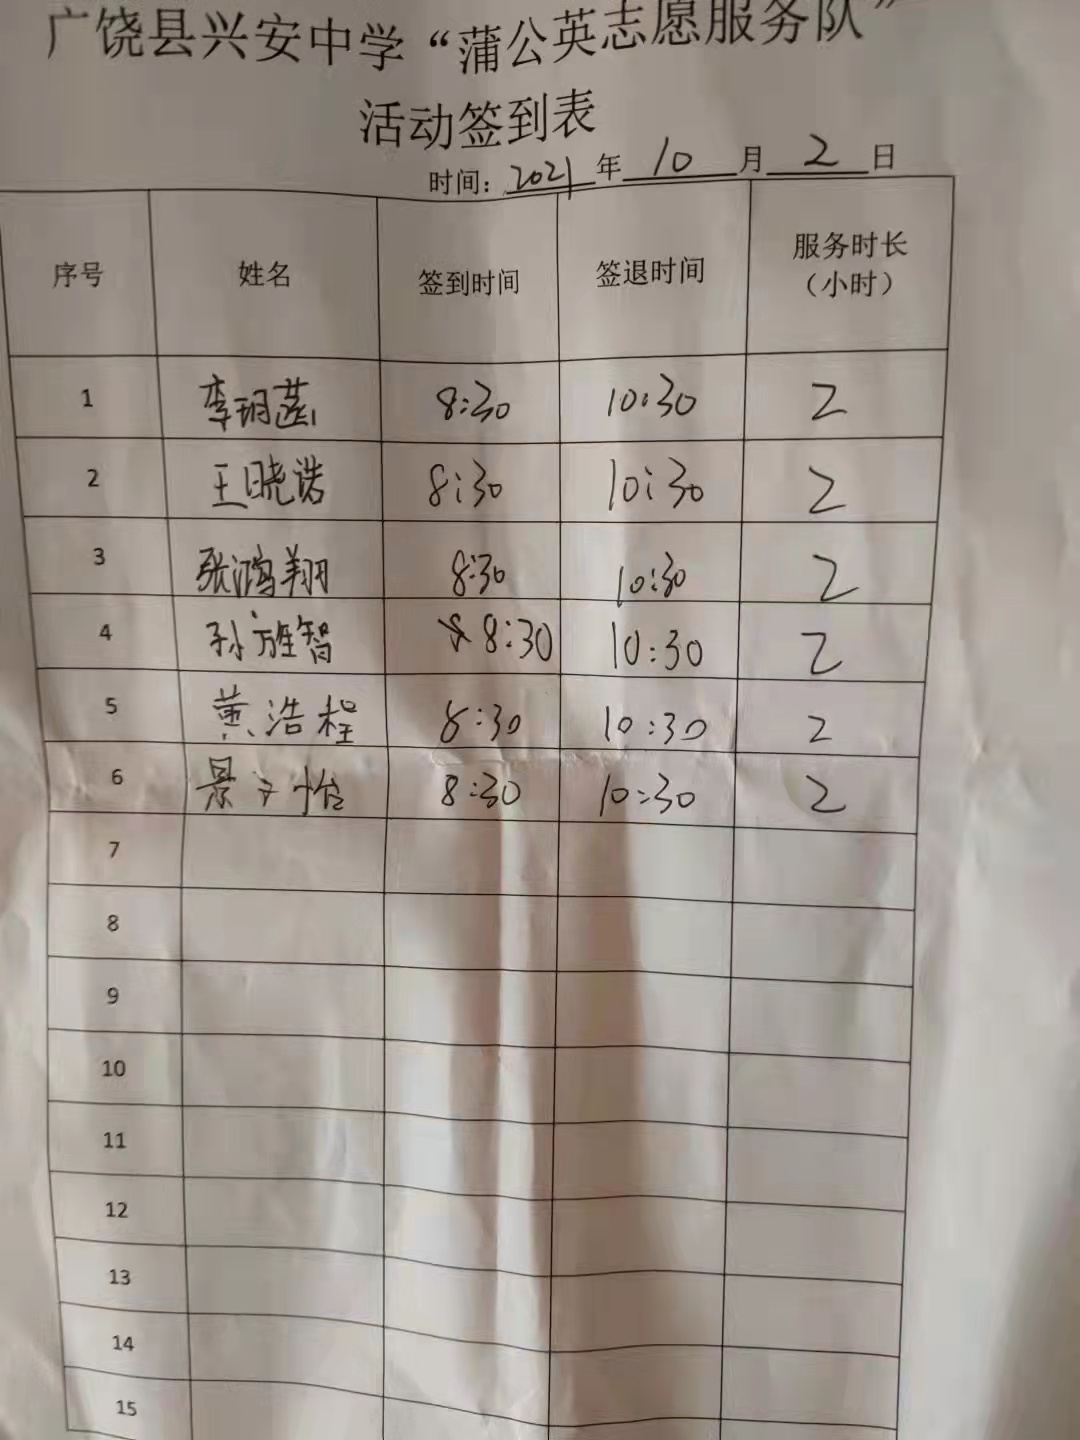 广饶县兴安中学“蒲公英志愿服务队”
活动签到表
时间：2021年10月2日
序号 姓名 签到时间 签退时间 服务时长（小时）
1 李玥菡 8:30 10:30 2
2 王晓诺 8:30 10:30 2
3 张鸿翔 8:30 10:30 2
4 孙旌智 8:30 10:30 2
5 黄浩程 8:30 10:30 2
6 景子怡 8:30 10:30 2
7
8
9
10
11
12
13
14
15